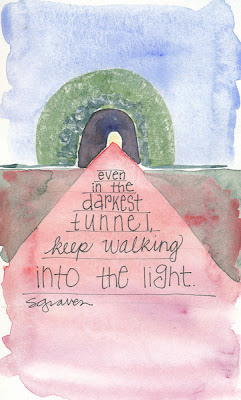 even
in the
darkest
tunnel,
keep walking
into the light.
Sgraves